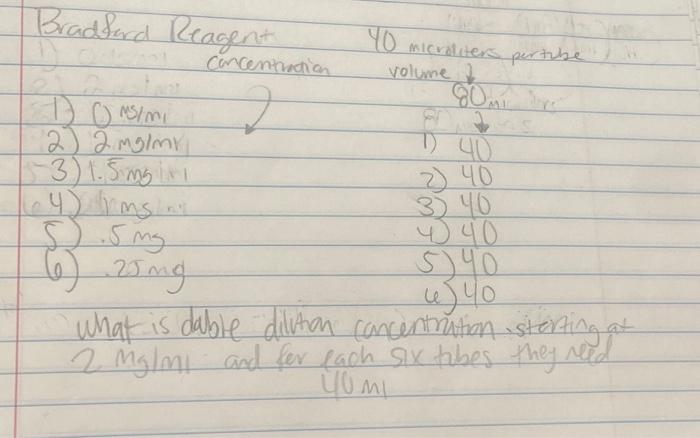 Bradford Reagent
40 microliters per tube
concentration
volume ↓
80 ml
1) 0 mg/ml
↓
2) 2 mg/ml
1) 40
3) 1.5 mg
2) 40
4) 1 mg
3) 40
5) .5 mg
4) 40
6) .25 mg
5) 40
6) 40
what is dabble dilution concentration starting at
2 mg/ml and for each six tubes they need
40 ml